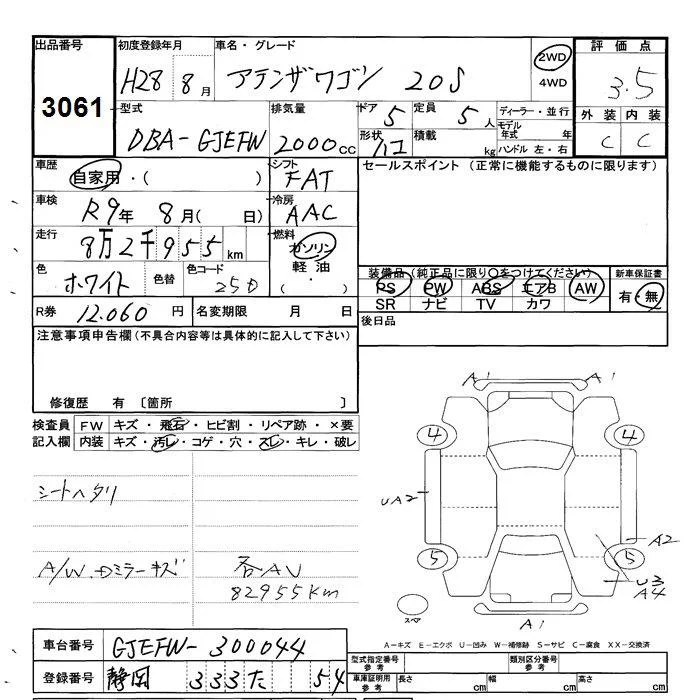 出品番号 初度登録年月 車名・グレード 評価点
3061 H28年 8月 アテンザワゴン 20S 2WD 3.5
4WD
型式 排気量 ドア 定員 ディーラー・並行 外装 内装
DBA-GJEFW 2000cc 5 5人 モデル年式 年 C C
形状 ハコ 積載 kg ハンドル 左・右
車歴 シフト セールスポイント (正常に機能するものに限ります)
自家用・( ) FAT
車検 冷房
R9年 8月( 日) AAC
走行 燃料
8万2千955km ガソリン
色 色替 色コード 軽油・ 装備品(純正品に限り○をつけてください) 新車保証書
ホワイト 25D ( ) PS PW ABS エアB AW 有・無
SR ナビ TV カワ
R券 12,060円 名変期限 月 日 後日品
注意事項申告欄(不具合内容等は具体的に記入して下さい)
修復歴 有 〔箇所 〕
検査員 FW キズ・飛石・ヒビ割・リペア跡・×要
記入欄 内装 キズ・汚レ・コゲ・穴・スレ・キレ・破レ
シートヘタリ
A/W、ミラーキズ 各AU
82955km
A1 A1
4 4
UA2
A2
5 5
U3
A4
スペア A1
A-キズ E-エクボ U-凹み W-補修跡 S-サビ C-腐食 XX-交換済
車台番号 GJEFW-300044
型式指定番号 参考 類別区分番号 参考
登録番号 静岡 333 た 54
車庫証明用 参考 長さ cm 幅 cm 高さ cm